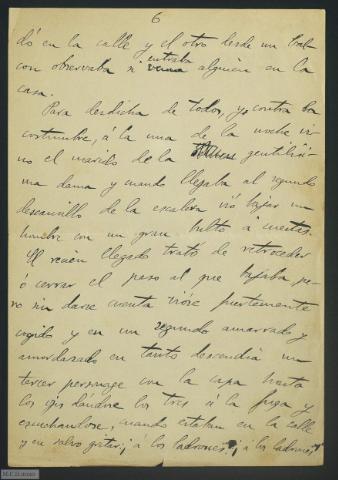 6
dó en la calle y el otro desde un bal-
con observaba si entraba alguien en la
casa.
Para desdicha de todos, y contra la
costumbre, á la una de la noche vi-
no el marido de la gentilísi-
ma dama y cuando llegaba al segundo
descansillo de la escalera vió bajar un
hombre con un gran bulto á cuestas.
El recien llegado trató de retroceder
ó cerrar el paso al que bajaba pe-
ro sin darse cuenta vióse fuertemente
cogido y en un segundo amarrado y
amordazado en tanto descendía un
tercer personage con la capa hasta
los ojos dándose los tres á la fuga y
escuchándose, cuando estaban en la calle
y en salvo gritar: ¡á los ladrones! ¡á los ladrones!